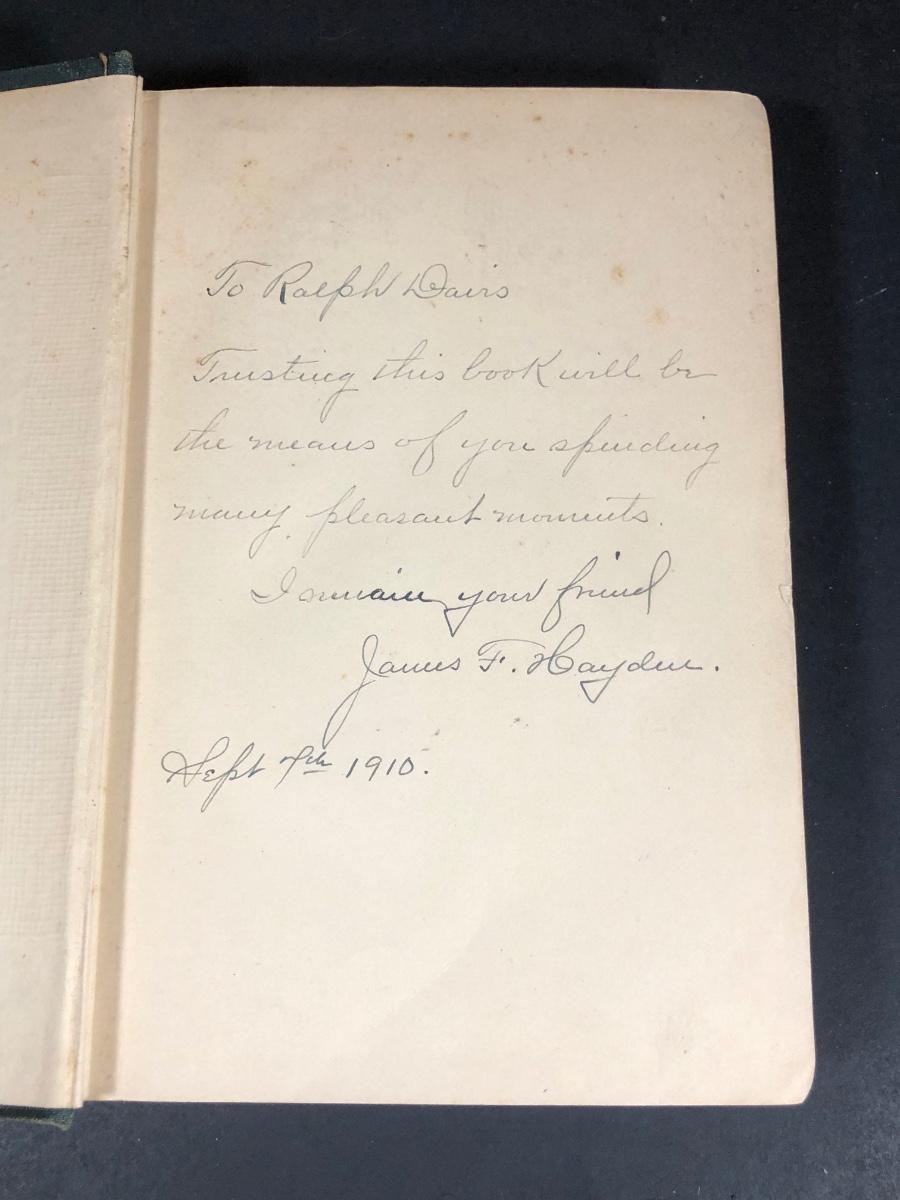 To Ralph Davis
Trusting this book will be
the means of you spending
many pleasant moments.
I remain your friend
James F. Hayden.
Sept 7th 1910.